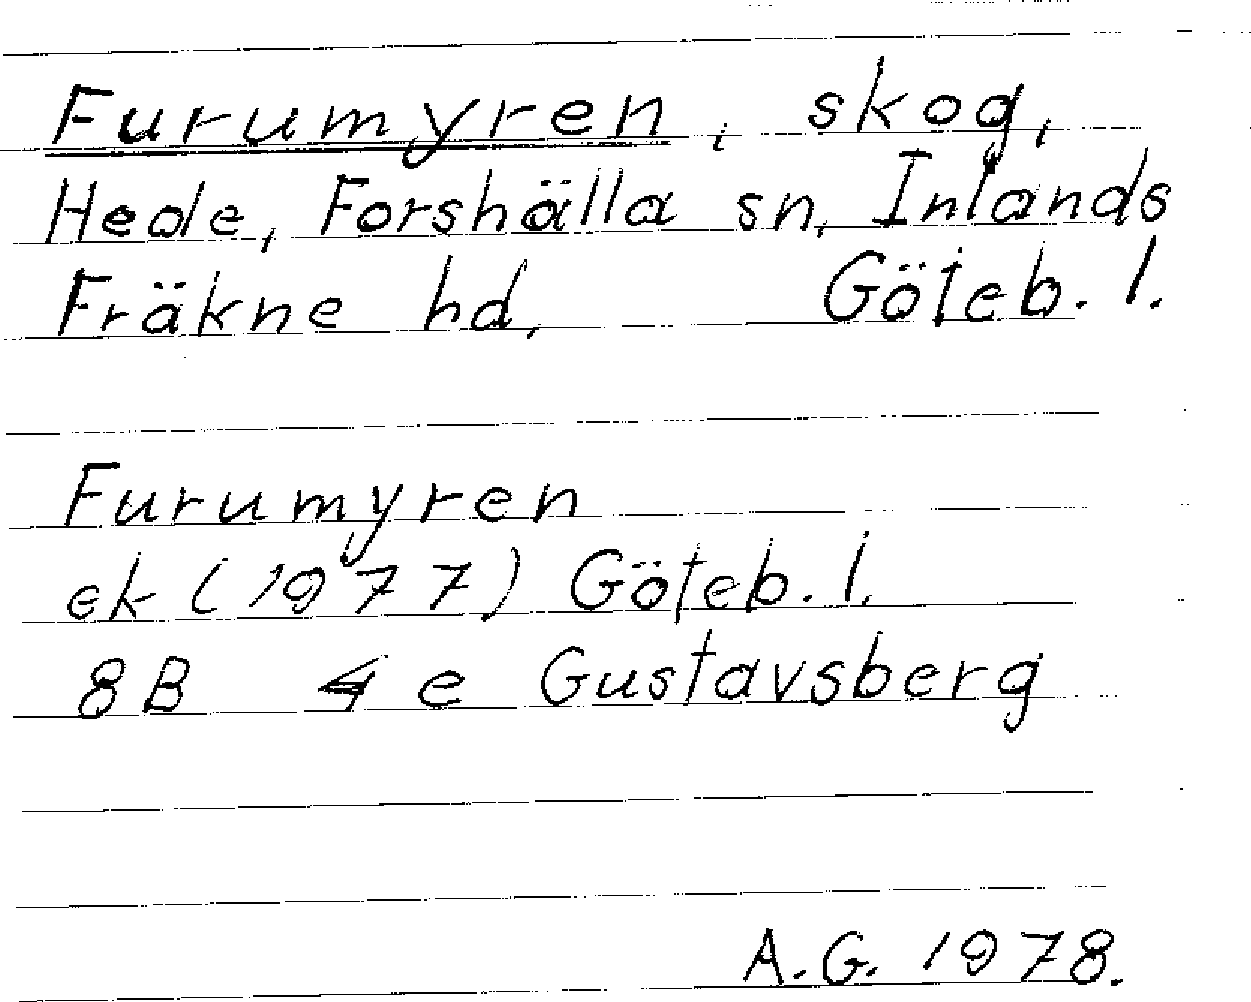 Furumyren, skog,
Hede, Forshälla sn, Inlands
Fräkne hd, Göteb. l.
Furumyren
ek (1977) Göteb. l.
8B 4e Gustavsberg
A.G. 1978.